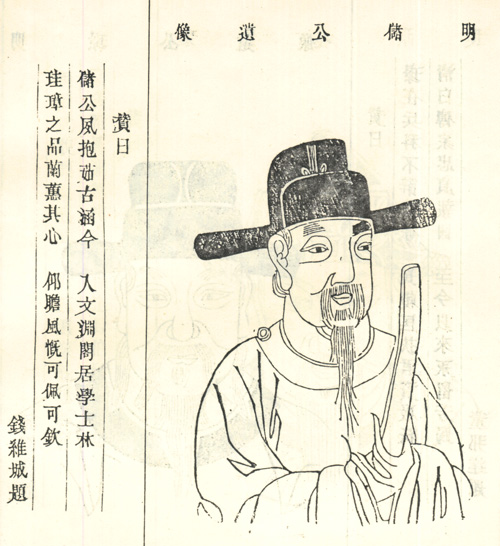 明儲公遺像
贊曰
儲公夙抱茹古涵今 入文淵閣居學士林
珪璋之品蘭蕙其心 仰瞻風慨可佩可欽
錢維城題